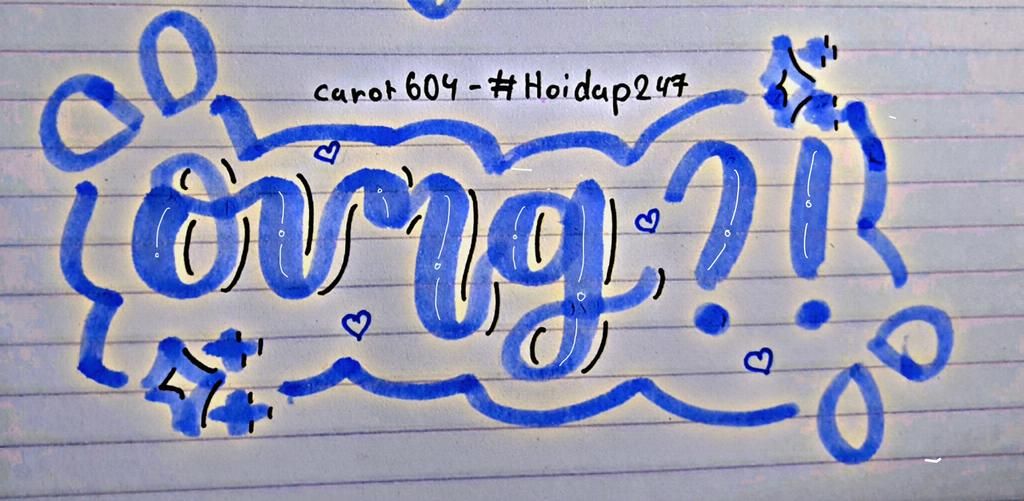 carot604 - #Hoidap247
omg?!